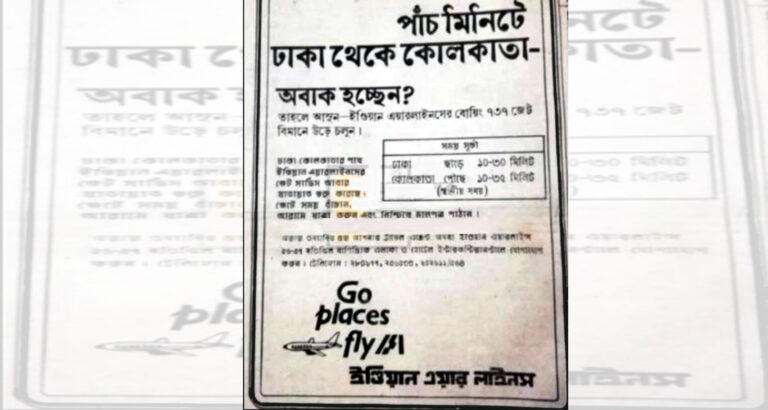 পাঁচ মিনিটে
ঢাকা থেকে কোলকাতা-
অবাক হচ্ছেন?
তাহলে আসুন-ইণ্ডিয়ান এয়ারলাইনসের বোয়িং ৭৩৭ জেট
বিমানে উড়ে চলুন।
সময় সূচী
ঢাকা ছাড়ে ১০-৩০ মিনিট
কোলকাতা পৌছে ১০-৩৫ মিনিট
(স্থানীয় সময়)
ঢাকা কোলকাতার পথে
ইণ্ডিয়ান এয়ারলাইনসের
জেট সার্ভিস আবার
যাতায়াত শুরু করেছে।
জেটে সময় বাঁচান,
আরামে যাত্রা করুন এবং নিশ্চিন্তে মালপত্র পাঠান।
করুন। টেলিফোন:
Go
places
fly
ইণ্ডিয়ান এয়ার লাইনস